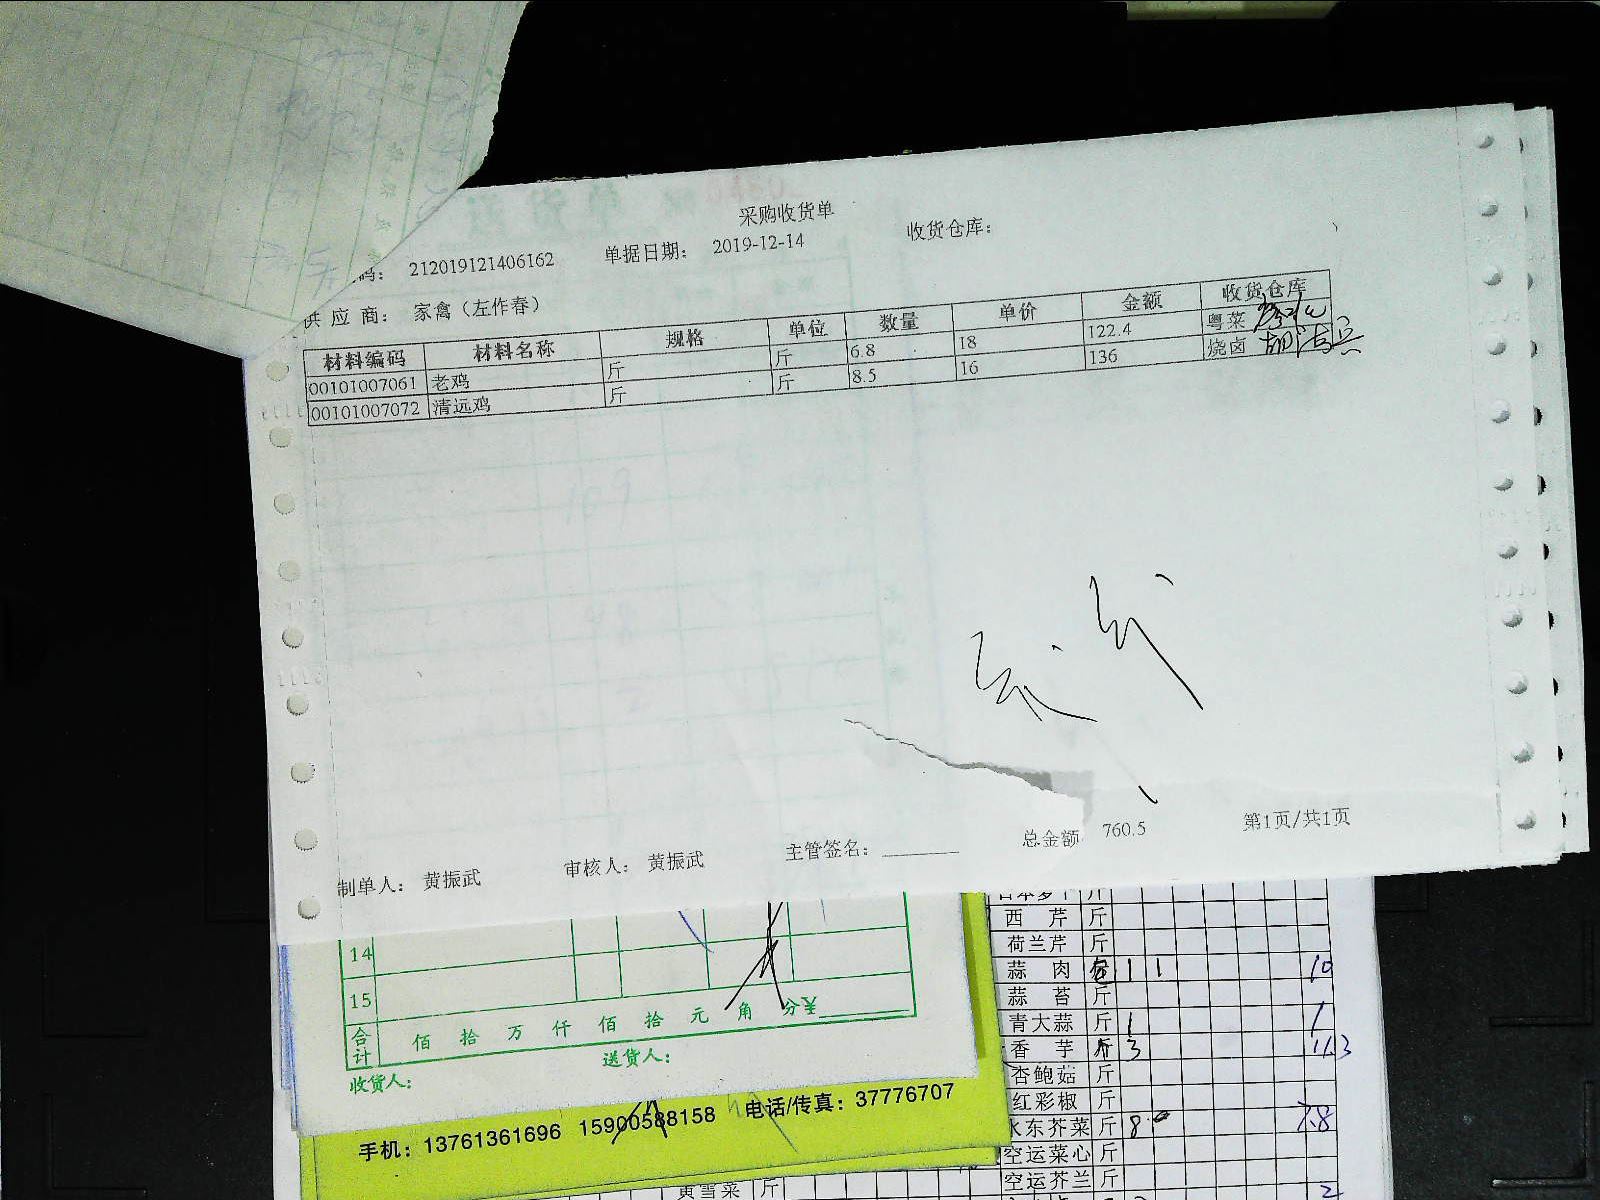 采购收货单
码： 212019121406162 单据日期： 2019-12-14 收货仓库：
供 应 商： 家禽（左作春）
材料编码 材料名称 规格 单位 数量 单价 金额 收货仓库
00101007061 老鸡 斤 斤 6.8 18 122.4 粤菜
00101007072 清远鸡 斤 斤 8.5 16 136 烧卤
制单人： 黄振武 审核人： 黄振武 主管签名： 总金额 760.5 第1页/共1页
14
15
合计 佰 拾 万 仟 佰 拾 元 角 分￥
收货人： 送货人：
手机：13761361696 15900588158 电话/传真：37776707
西 芹 斤
荷兰芹 斤
蒜 肉 1 1 10
蒜 苔 斤
青大蒜 斤 1 1
香 芋 斤 3 11.3
杏鲍菇 斤
红彩椒 斤
水东芥菜 斤 8 7.8
空运菜心 斤
空运芥兰 斤 2
黄雪菜 斤